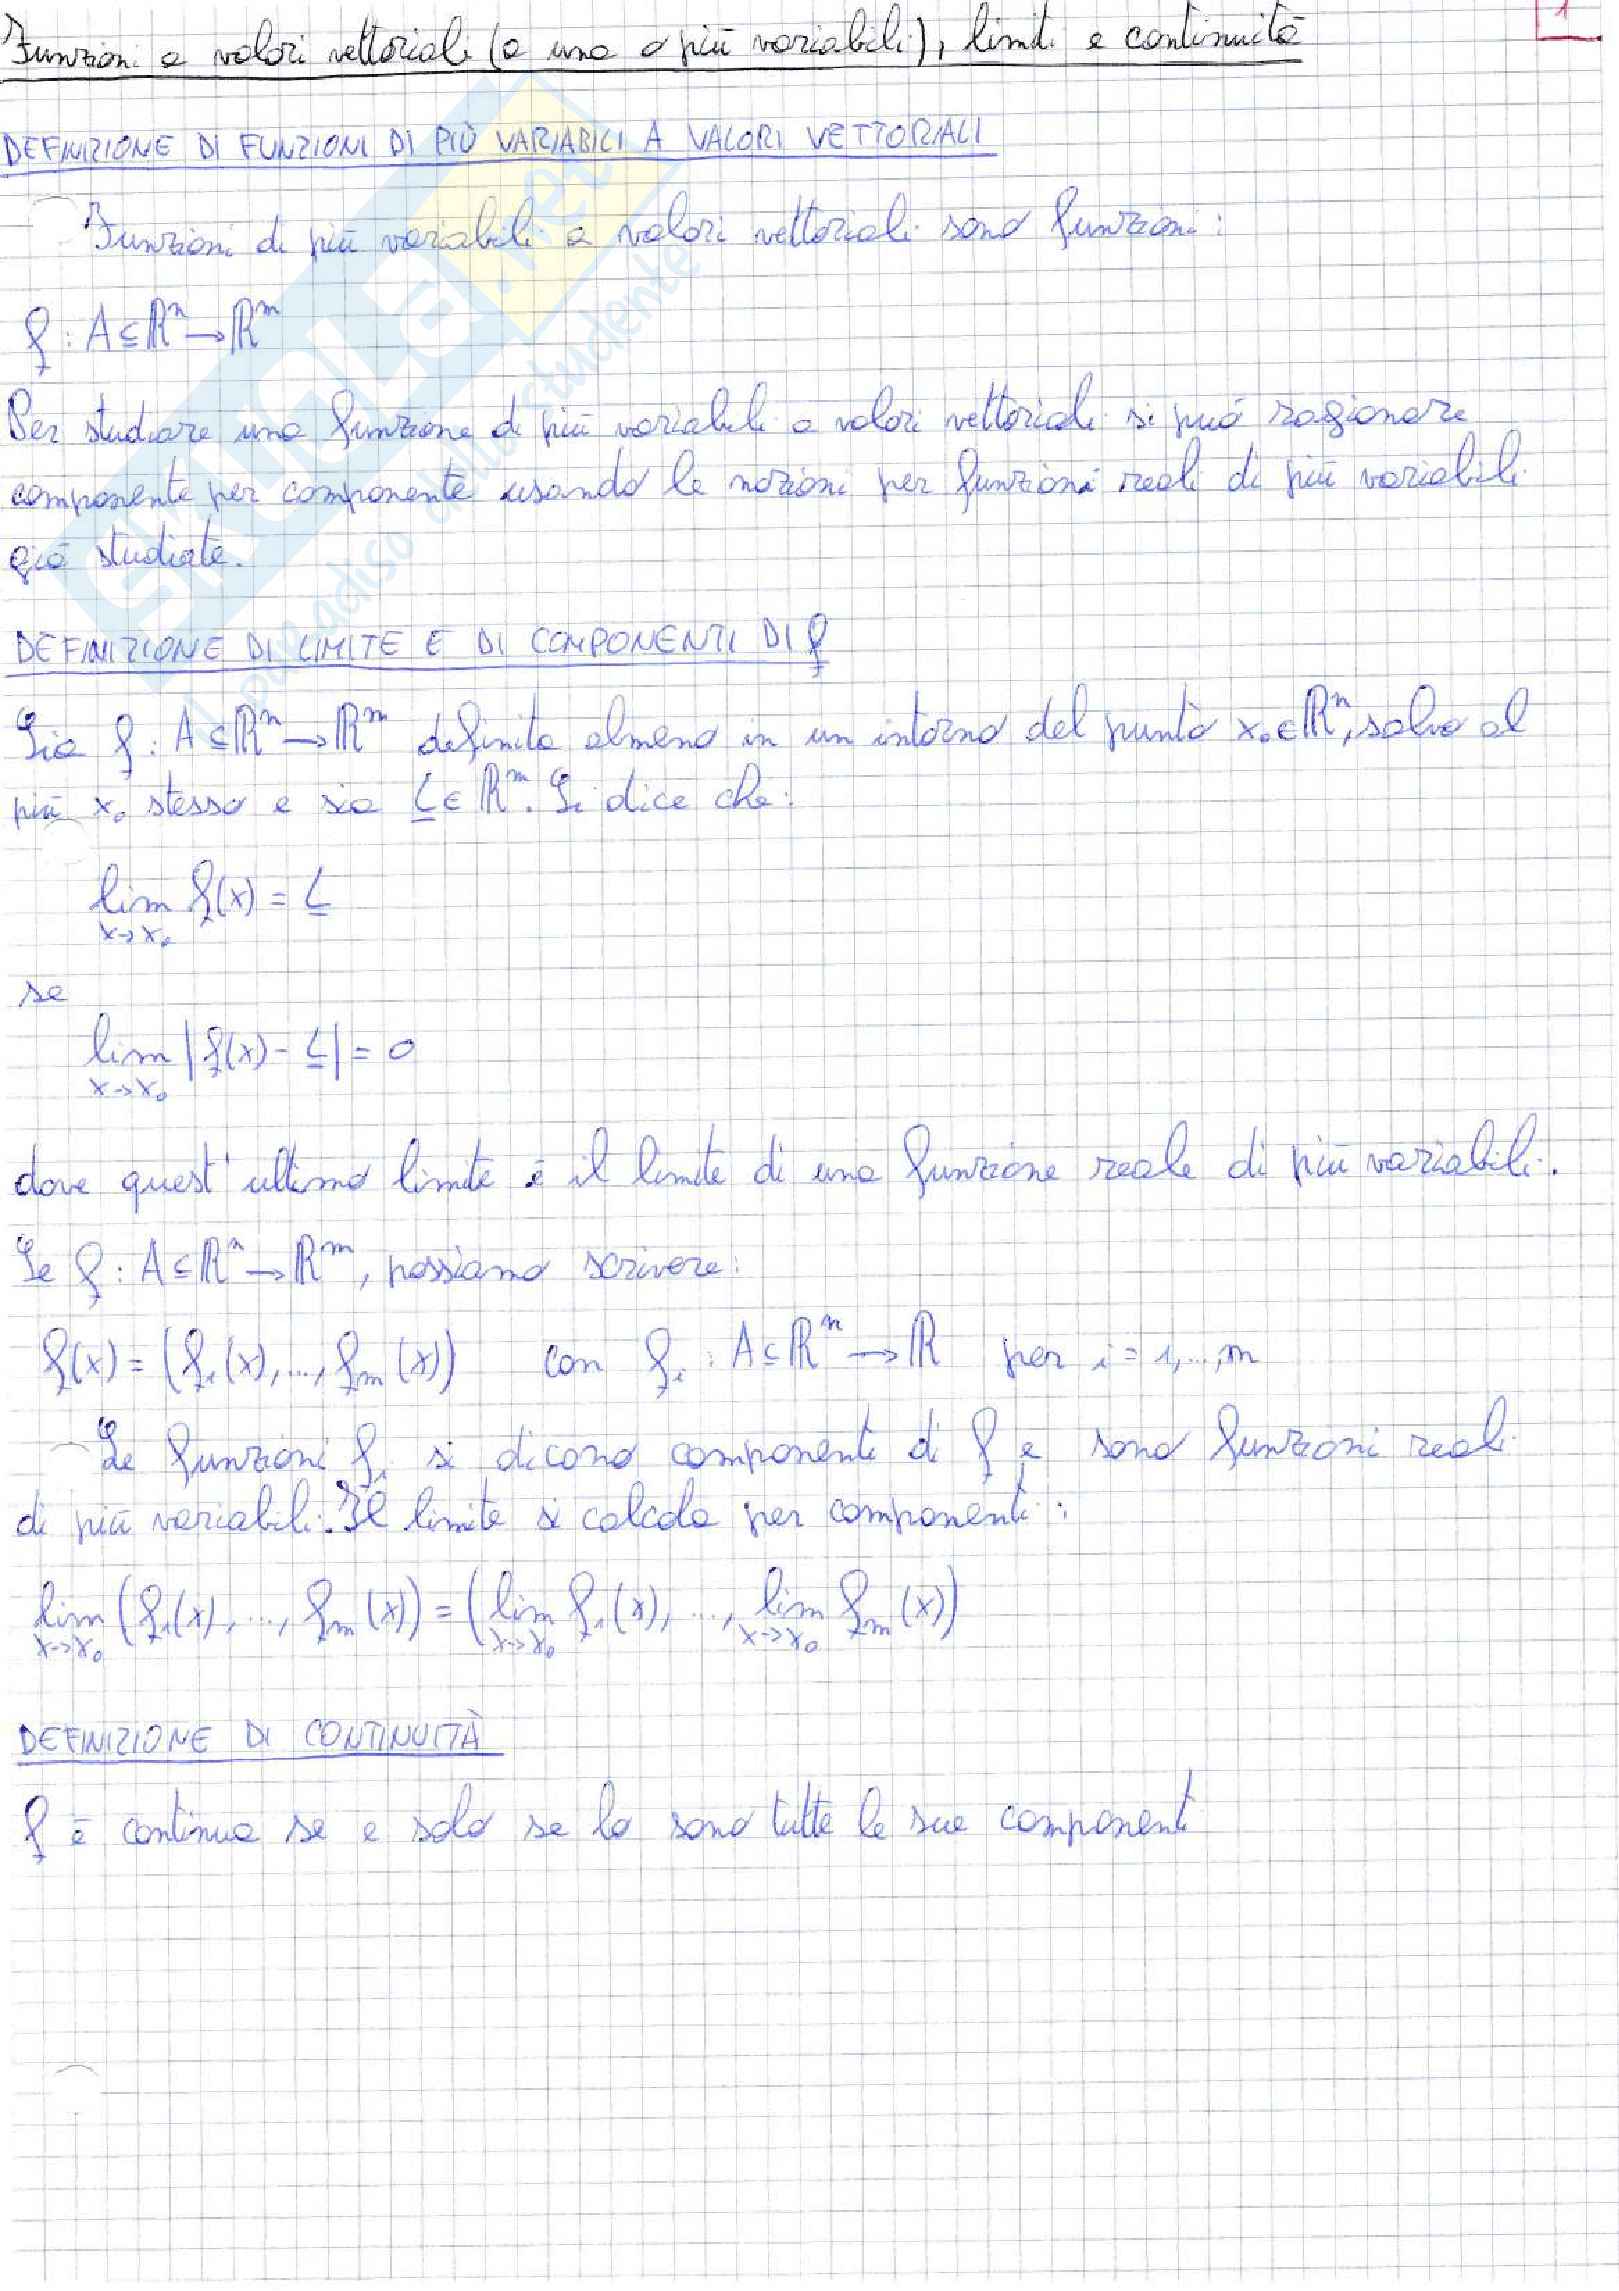 1
Funzioni a valori vettoriali (a una o più variabili), limiti e continuità
DEFINIZIONE DI FUNZIONI DI PIÙ VARIABILI A VALORI VETTORIALI
Funzioni di più variabili a valori vettoriali sono funzioni:
f : A ⊆ ℝⁿ → ℝᵐ
Per studiare una funzione di più variabili a valori vettoriali si può ragionare
componente per componente usando le nozioni per funzioni reali di più variabili
già studiate.
DEFINIZIONE DI LIMITE E DI COMPONENTI DI f
Sia f : A ⊆ ℝⁿ → ℝᵐ definita almeno in un intorno del punto x₀ ∈ ℝⁿ, salvo al
più x₀ stesso e sia L ∈ ℝᵐ. Si dice che:
lim f(x) = L
x→x₀
se
lim |f(x) - L| = 0
x→x₀
dove quest'ultimo limite è il limite di una funzione reale di più variabili.
Se f : A ⊆ ℝⁿ → ℝᵐ, possiamo scrivere:
f(x) = (f₁(x), ..., fₘ(x)) con fᵢ : A ⊆ ℝⁿ → ℝ per i = 1, ..., m
Le funzioni fᵢ si dicono componenti di f e sono funzioni reali
di più variabili. Il limite si calcola per componenti:
lim (f₁(x), ..., fₘ(x)) = (lim f₁(x), ..., lim fₘ(x))
x→x₀ x→x₀ x→x₀
DEFINIZIONE DI CONTINUITÀ
f è continua se e solo se lo sono tutte le sue componenti
SKUOLA.net
il paradiso dello studente